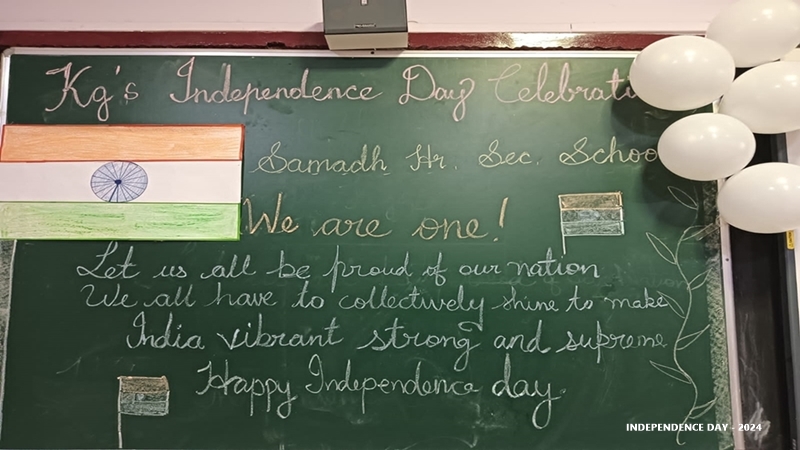 Kg's Independence Day Celebrati
Samadh Hr. Sec. Schoo
We are one!
Let us all be proud of our nation
We all have to collectively shine to make
India vibrant strong and supreme
Happy Independence day.
INDEPENDENCE DAY - 2024